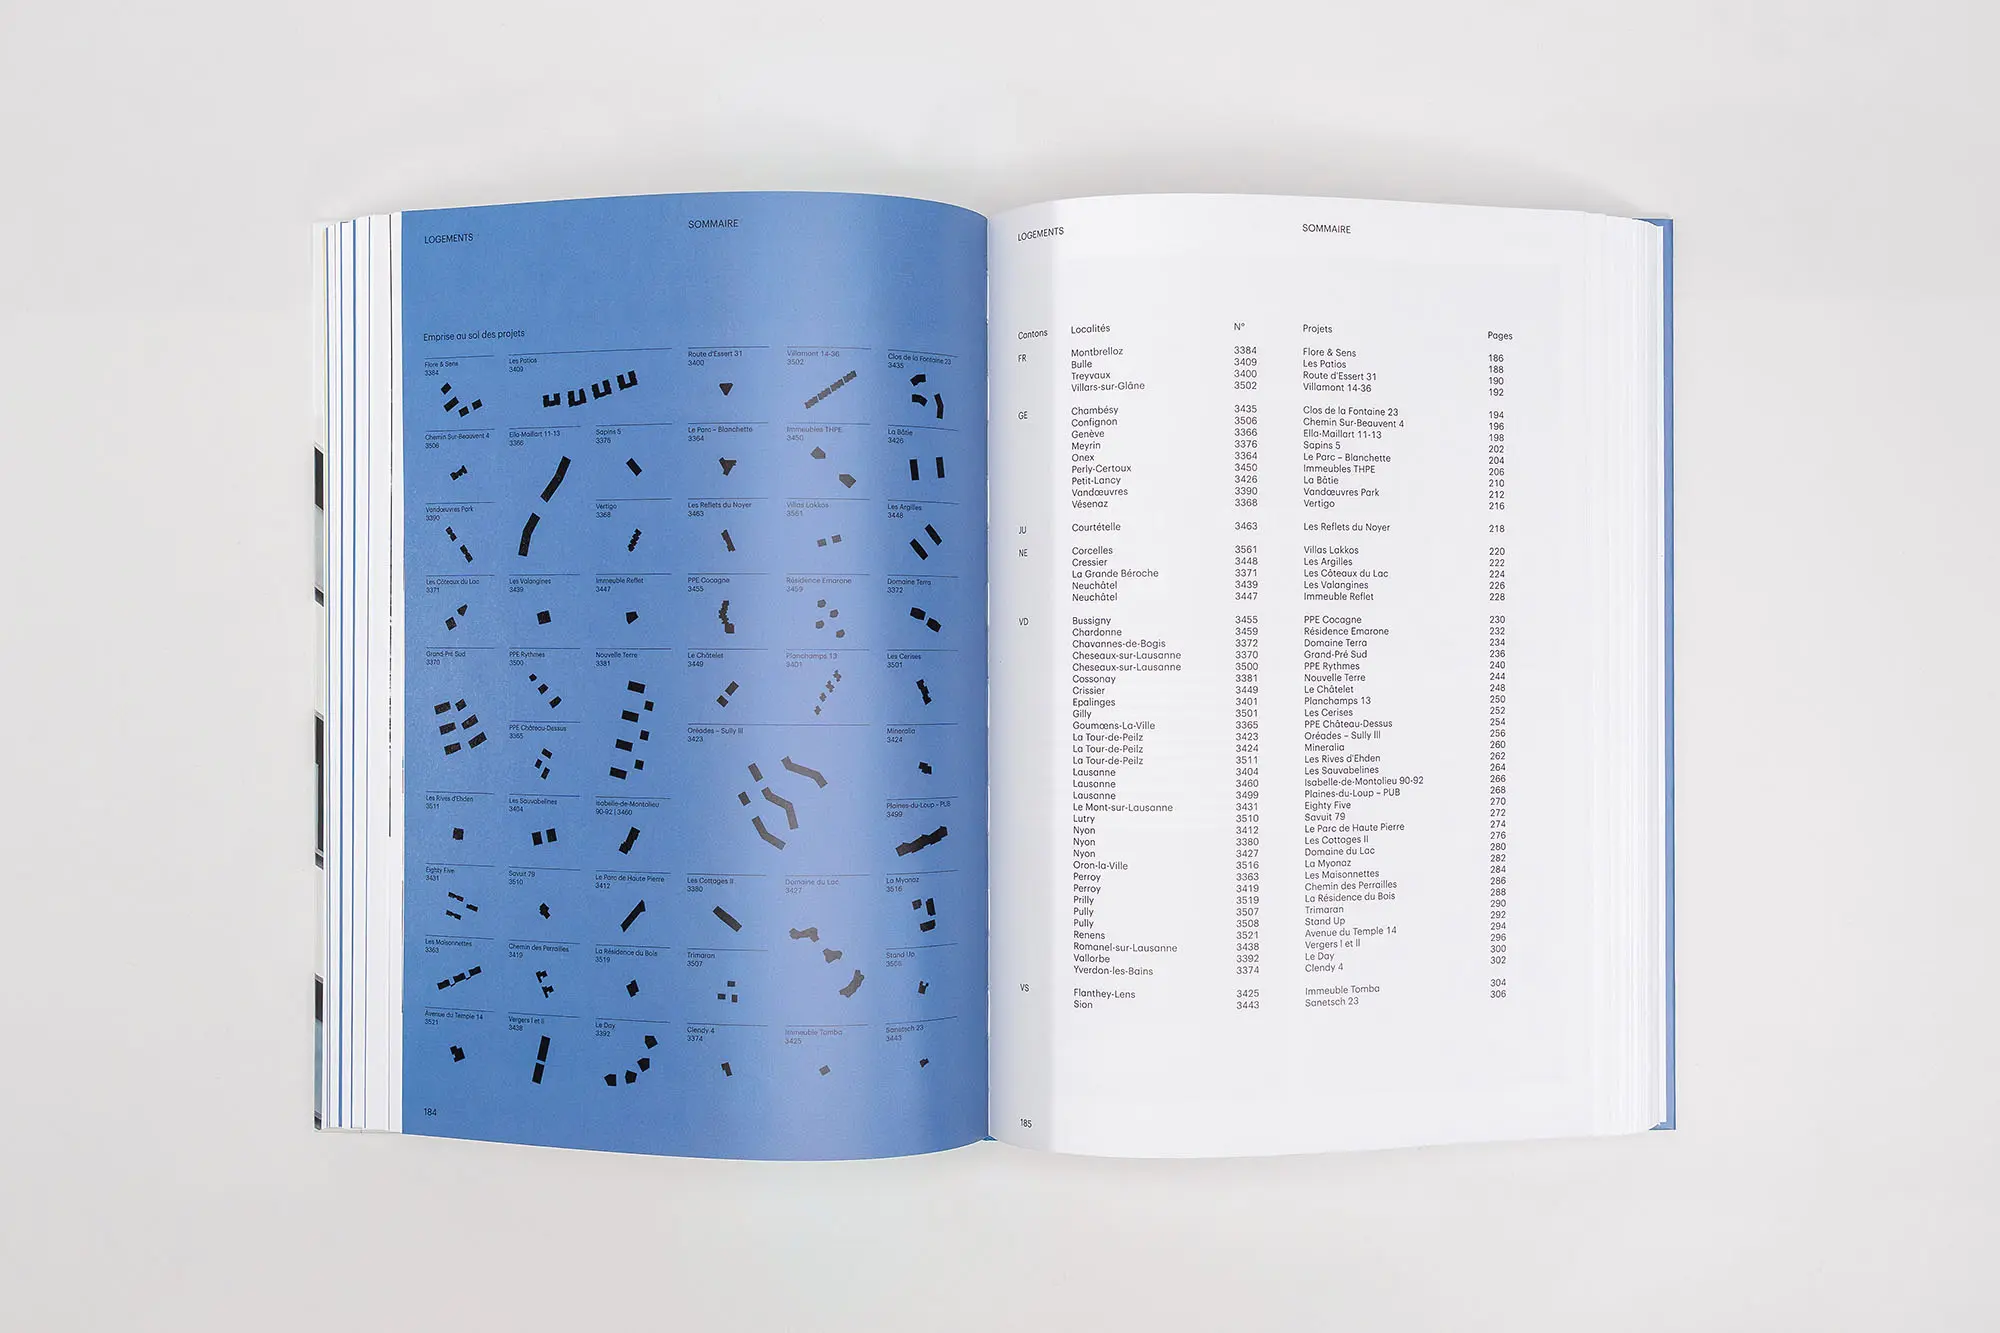 LOGEMENTS
SOMMAIRE
Emprise au sol des projets
Flore & Sens
3384
Les Patios
3409
Route d'Essert 31
3400
Villamont 14-36
3502
Clos de la Fontaine 23
3435
Chemin Sur-Beauvent 4
3506
Ella-Maillart 11-13
3366
Sapins 5
3376
Le Parc – Blanchette
3364
Immeubles THPE
3450
La Bâtie
3426
Vandœuvres Park
3390
Vertigo
3368
Les Reflets du Noyer
3463
Villas Lakkos
3561
Les Argilles
3448
Les Côteaux du Lac
3371
Les Valangines
3439
Immeuble Reflet
3447
PPE Cocagne
3455
Résidence Emarone
3459
Domaine Terra
3372
Grand-Pré Sud
3370
PPE Rythmes
3500
Nouvelle Terre
3381
Le Châtelet
3449
Planchamps 13
3401
Les Cerises
3501
PPE Château-Dessus
3365
Oréades – Sully III
3423
Mineralia
3424
Les Rives d'Ehden
3511
Les Sauvabelines
3404
Isabelle-de-Montolieu
90-92 | 3460
Plaines-du-Loup – PUB
3499
Eighty Five
3431
Savuit 79
3510
Le Parc de Haute Pierre
3412
Les Cottages II
3380
Domaine du Lac
3427
La Myonaz
3516
Les Maisonnettes
3363
Chemin des Perrailles
3419
La Résidence du Bois
3519
Trimaran
3507
Stand Up
3508
Avenue du Temple 14
3521
Vergers I et II
3438
Le Day
3392
Clendy 4
3374
Immeuble Tomba
3425
Sanetsch 23
3443
184
LOGEMENTS
SOMMAIRE
Cantons Localités N° Projets Pages
FR Montbrelloz 3384 Flore & Sens 186
Bulle 3409 Les Patios 188
Treyvaux 3400 Route d'Essert 31 190
Villars-sur-Glâne 3502 Villamont 14-36 192
GE Chambésy 3435 Clos de la Fontaine 23 194
Confignon 3506 Chemin Sur-Beauvent 4 196
Genève 3366 Ella-Maillart 11-13 198
Meyrin 3376 Sapins 5 202
Onex 3364 Le Parc – Blanchette 204
Perly-Certoux 3450 Immeubles THPE 206
Petit-Lancy 3426 La Bâtie 210
Vandœuvres 3390 Vandœuvres Park 212
Vésenaz 3368 Vertigo 216
JU Courtételle 3463 Les Reflets du Noyer 218
NE Corcelles 3561 Villas Lakkos 220
Cressier 3448 Les Argilles 222
La Grande Béroche 3371 Les Côteaux du Lac 224
Neuchâtel 3439 Les Valangines 226
Neuchâtel 3447 Immeuble Reflet 228
VD Bussigny 3455 PPE Cocagne 230
Chardonne 3459 Résidence Emarone 232
Chavannes-de-Bogis 3372 Domaine Terra 234
Cheseaux-sur-Lausanne 3370 Grand-Pré Sud 236
Cheseaux-sur-Lausanne 3500 PPE Rythmes 240
Cossonay 3381 Nouvelle Terre 244
Crissier 3449 Le Châtelet 248
Epalinges 3401 Planchamps 13 250
Gilly 3501 Les Cerises 252
Goumœns-La-Ville 3365 PPE Château-Dessus 254
La Tour-de-Peilz 3423 Oréades – Sully III 256
La Tour-de-Peilz 3424 Mineralia 260
La Tour-de-Peilz 3511 Les Rives d'Ehden 262
Lausanne 3404 Les Sauvabelines 264
Lausanne 3460 Isabelle-de-Montolieu 90-92 266
Lausanne 3499 Plaines-du-Loup – PUB 268
Le Mont-sur-Lausanne 3431 Eighty Five 270
Lutry 3510 Savuit 79 272
Nyon 3412 Le Parc de Haute Pierre 274
Nyon 3380 Les Cottages II 276
Nyon 3427 Domaine du Lac 280
Oron-la-Ville 3516 La Myonaz 282
Perroy 3363 Les Maisonnettes 284
Perroy 3419 Chemin des Perrailles 286
Prilly 3519 La Résidence du Bois 288
Pully 3507 Trimaran 290
Pully 3508 Stand Up 292
Renens 3521 Avenue du Temple 14 294
Romanel-sur-Lausanne 3438 Vergers I et II 296
Vallorbe 3392 Le Day 300
Yverdon-les-Bains 3374 Clendy 4 302
VS Flanthey-Lens 3425 Immeuble Tomba 304
Sion 3443 Sanetsch 23 306
185